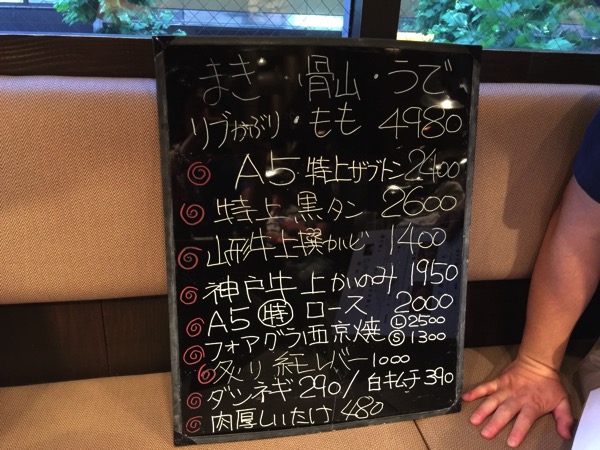 まき・骨山・うで
リブかぶり・もも 4980
A5 特上ザブトン 2400
特上 黒タン 2600
山形牛上撰カルビ 1400
神戸牛 上かいのみ 1950
A5 特 ロース 2000
フォアグラ 焼 L 2500
S 1300
レバー 1000
ダンネギ 290/白キムチ 390
肉厚しいたけ 480